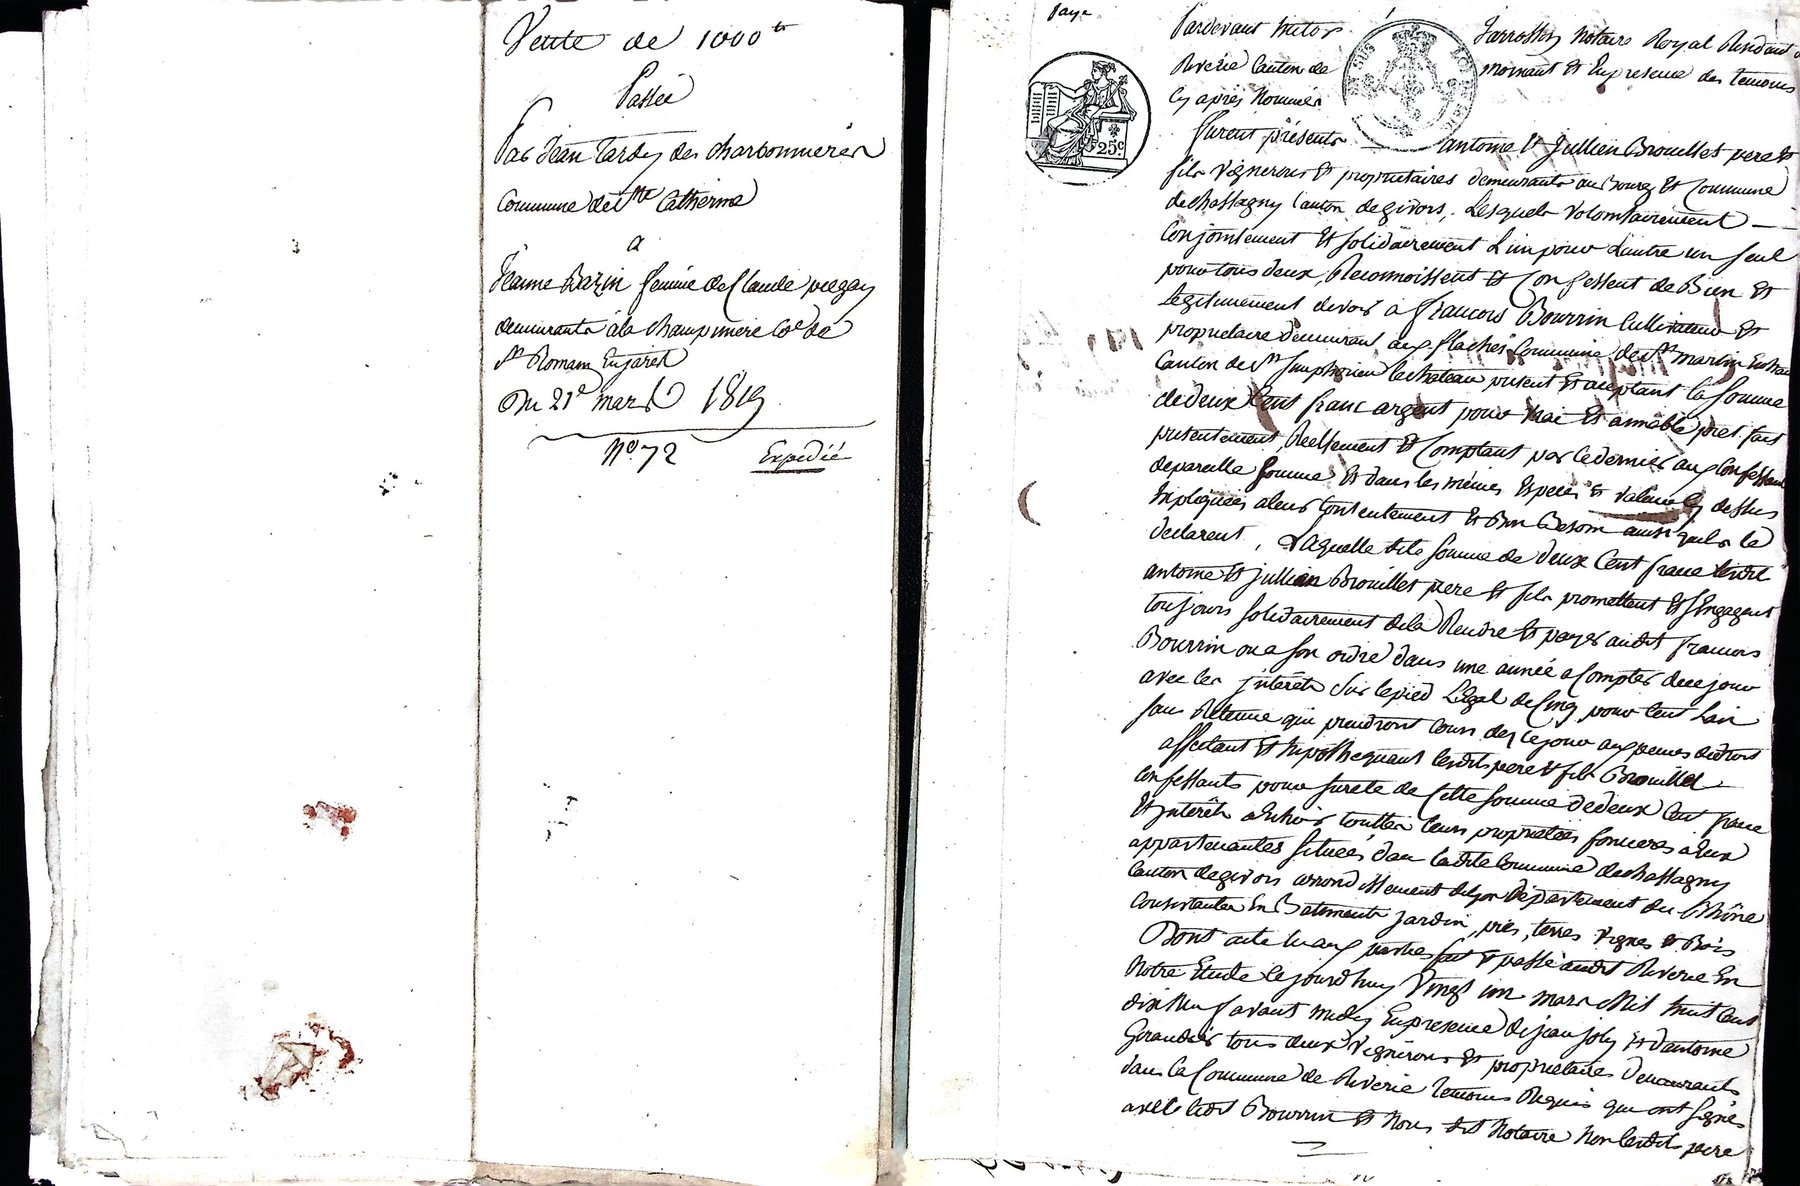 Vente de 1000 tt
Passée
Par Jean Tardy des charbonnieres
Commune de Ste Catherine
a
Jeanne Bazin femme de Claude
demeurants à la Champinerie Coe de
St Romain En jarets
Du 21e mars 1819
No. 72 Expedié
Pardevant Notaire Royal Residant a
Riverie Canton de mornant Et En presence des temoins
Cy après Nommés
furent présents antoine Et Jullien Brouillet pere Et
fils Vignerons Et proprietaires demeurants au Bourg Et Commune
de chassagny Canton de givors, Lesquels volontairement
Conjointement Et solidairement L'un pour L'autre un seul
pour tous deux, Reconnoissent Et Confessent de Bien Et
Legitimement devoir à francois Bourrin Cultivateur Et
proprietaire demeurant aux flaches Commune de St martin
Canton de St Simphorien le chateau present Et aceptant la somme
de deux Cent franc argent pour vrai Et aimable prêt fait
presentement, Reellement Et Comptant par ce dernier aux Confessants
de pareille somme Et dans les mêmes Especes Et valeur Cy dessus
Expliquées a leur Contentement Et Bon Besoin ainsi qu'ils le
declarent, Laquelle dite somme de deux Cent franc lesdit
antoine Et jullien Brouillet pere Et fils promettent Et s'Engagent
toujours solidairement de la Rendre Et payer audit francois
Bourrin ou a son ordre dans une année a Compter de ce jour
avec les jnterêts sur le pied Légal de Cinq pour Cent L'an
sans Retenue qui prendront Cours des ce jour aux peines de droit
affectant Et hipothequant lesdits pere Et fils Brouillet
Confessants pour sureté de Cette somme de deux Cent franc
Et jnterêts a Echoir touttes leurs proprietées foncieres a Eux
appartenantes situées dans ladite Commune de chassagny
Canton de givors arrondissement de lyon département du Rhône
Consistantes En Batiments jardin, prés, terres Vignes Et Bois
Dont acte Lu aux parties fait Et passé audit Riverie En
Notre Etude Cejourd'huy Vingt un mars Mil huit Cent
dix Neuf avant midy En presence de jean joly Et d'antoine
Girandier tous deux Vignerons Et proprietaires demeurants
dans la Commune de Riverie temoins Requis qui ont signés
avec ledit Bourrin Et Nous dit Notaire Non lesdits pere